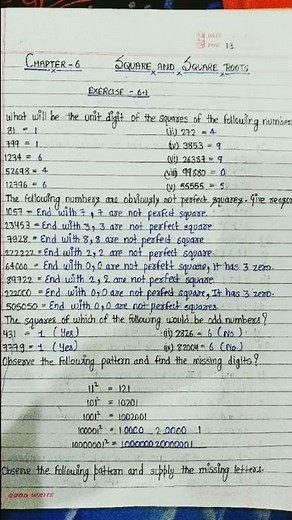 DATE
PAGE 13
CHAPTER-6 SQUARE AND SQUARE ROOTS
EXERCISE - 6.1
What will be the unit digit of the squares of the following numbers
81 = 1 (ii) 272 = 4
799 = 1 (iv) 3853 = 9
1234 = 6 (vi) 26387 = 9
52698 = 4 (viii) 99880 = 0
12796 = 6 (x) 55555 = 5
The following numbers are obviously not perfect squares. Give reason
1057 = End with 7, 7 are not perfect square.
23453 = End with 3, 3 are not perfect square
7928 = End with 8, 8 are not perfect square
222222 = End with 2, 2 are not perfect square.
64000 = End with 0, 0 are not perfect square, it has 3 zero.
89722 = End with 2, 2 are not perfect square.
222000 = End with 0, 0 are not perfect square, It has 3 zero.
505050 = End with 0, 0 are not perfect squares
The squares of which of the following would be odd numbers?
431 = 1 (Yes) (ii) 2826 = 6 (No)
7779 = 1 (Yes) (iv) 82004 = 6 (No)
Observe the following pattern and find the missing digits?
11² = 121
101² = 10201
1001² = 1002001
100001² = 10000 20000 1
10000001² = 100000020000001
Observe the following pattern and supply the missing letters.
GOOD WRITE